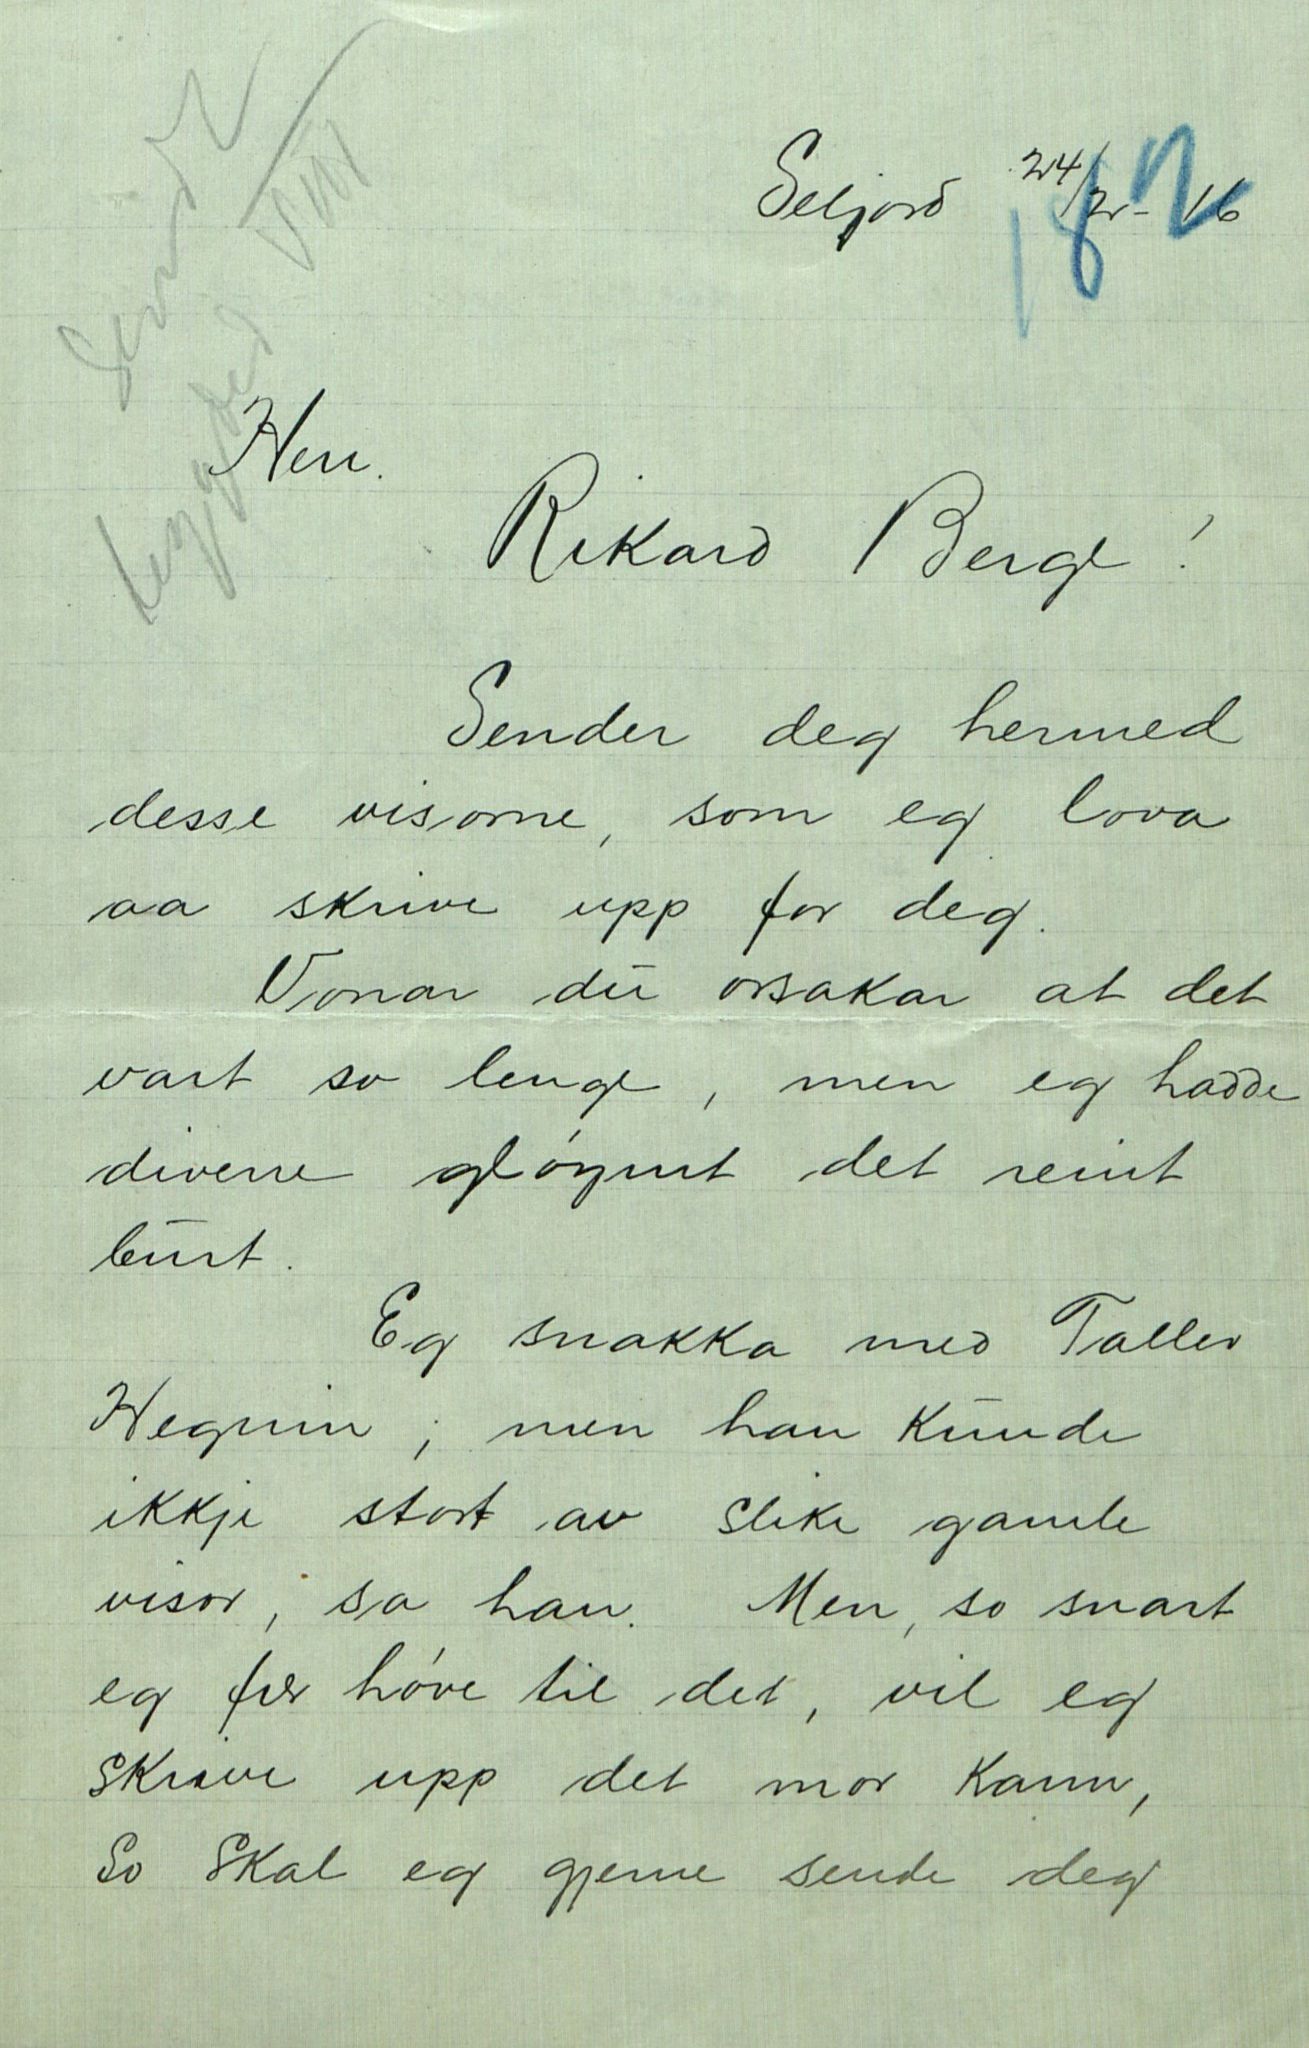 Seljord 24/2 - 16
182
Herr.
Rikard Berge!
Sender deg hermed
desse visorne, som eg lova
aa skrive upp for deg.
Vonar du orsakar at det
vart so lenge, men eg hadde
diverre gløymt det reint
burt.
Eg snakka med Tallev
Hegnin; men han kunde
ikkje stort av slike gamle
visor, sa han. Men, so snart
eg fær høve til det, vil eg
skrive upp det mor kann,
So skal eg gjerne sende deg